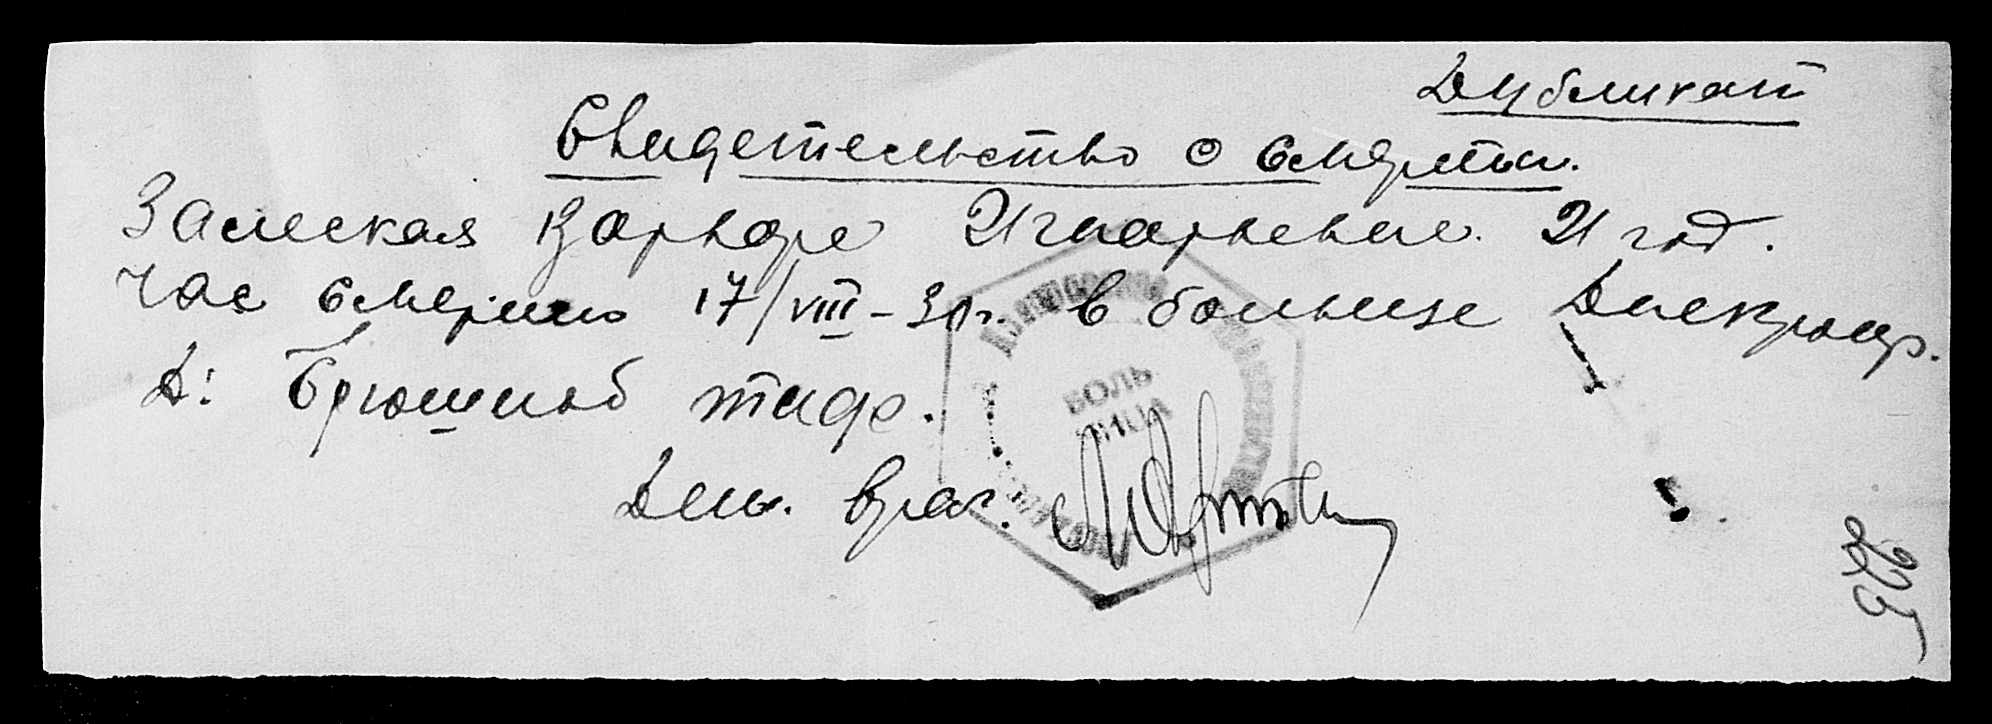 Дубликат
Свидетельство о смерти.
Залеская Варвара Игнатьевна. 21 год.
Час смерти 17/VIII-30г. в больнице
D: Брюшной тиф.
Деж. врач:
БОЛЬ
НИЦА